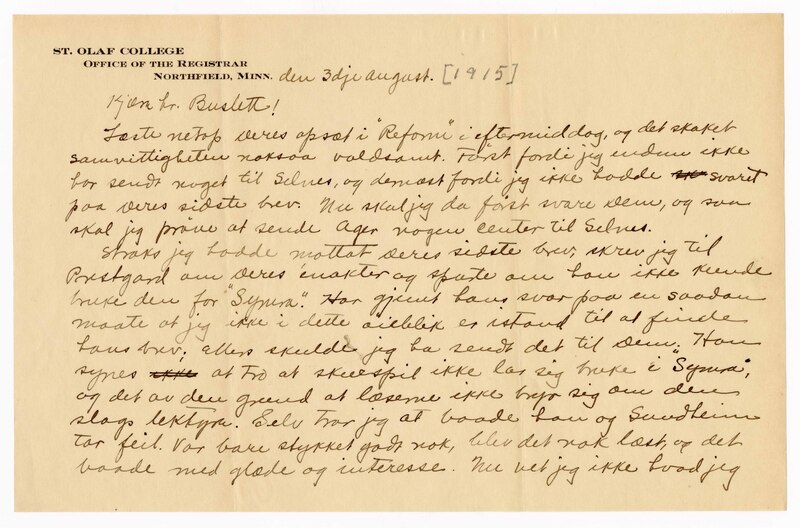 ST. OLAF COLLEGE
OFFICE OF THE REGISTRAR
NORTHFIELD, MINN. den 3dje august. [1915]
Kjære hr. Buslett!
Læste netop Deres opsæt i "Reform" i eftermiddag, og det skaket
samvittigheten noksaa voldsomt. Först fordi jeg endnu ikke
har sendt noget til Selnes, og dernæst fordi jeg ikke hadde svaret
paa Deres sidste brev. Nu skal jeg da först svare Dem, og saa
skal jeg pröve at sende Ager nogen center til Selnes.
Straks jeg hadde mottat Deres sidste brev, skrev jeg til
Prestgard om Deres enakter og spurte om han ikke kunde
bruke den for "Symra". Har gjemt hans svar paa en saadan
maate at jeg ikke i dette öieblik er istand til at finde
hans brev; ellers skulde jeg ha sendt det til Dem. Han
synes at tro at skuespil ikke lar sig bruke i "Symra",
og det av den grund at læserne ikke bryr sig om den
slags lektyre. Selv tror jeg at baade han og Sundheim
tar feil. Var bare stykket godt nok, blev det nok læst, og det
baade med glæde og interesse. Nu vet jeg ikke hvad jeg